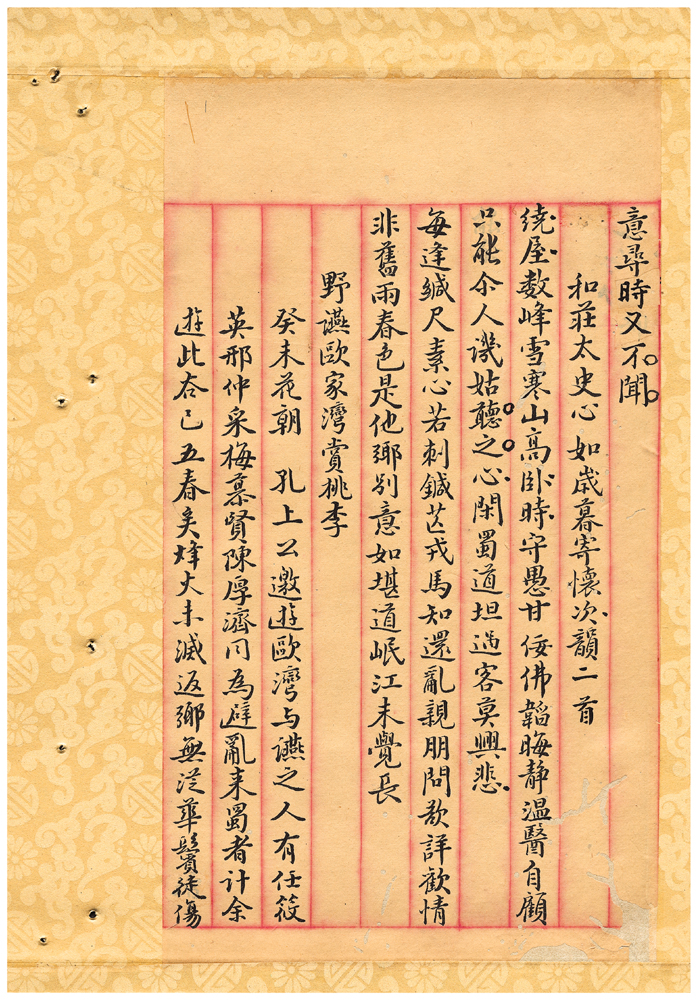 意尋時又不聞
和莊太史心如歲暮寄懷次韻二首
繞屋數峰雪寒山高卧時守愚甘佞佛韜晦静温醫自顧
只能令人譏姑聽之心閑蜀道坦過客莫興悲
每逢緘尺素心若刺鍼芒戎馬知還亂親朋問欲詳歡情
非舊雨春色是他鄉别意如堪道岷江未覺長
野讌歐家灣賞桃李
癸未花朝 孔上公邀遊歐灣与讌之人有任筱
英邢仲采梅慕賢陳厚濟同為避亂来蜀者計余
遊此夳已五春矣烽火未滅返鄉無從華鬢徒傷